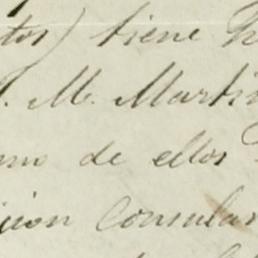 tos) tiene h
. M. Martin
uno de ellos
cion consular